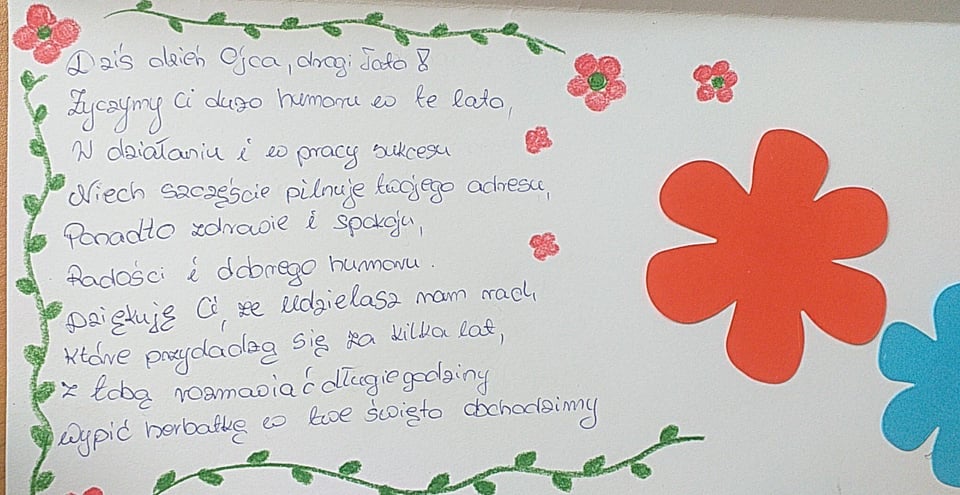 Dziś dzień Ojca, drogi Tato!
Życzymy Ci dużo humoru w te lato,
W działaniu i w pracy sukcesu
Niech szczęście pilnuje twojego adresu,
Ponadto zdrowie i spokoju,
Radości i dobrego humoru.
Dziękuję Ci, że udzielasz nam rad,
które przydadzą się za kilka lat,
z tobą rozmawiać długie godziny
wypić herbatkę w twe święto obchodzimy